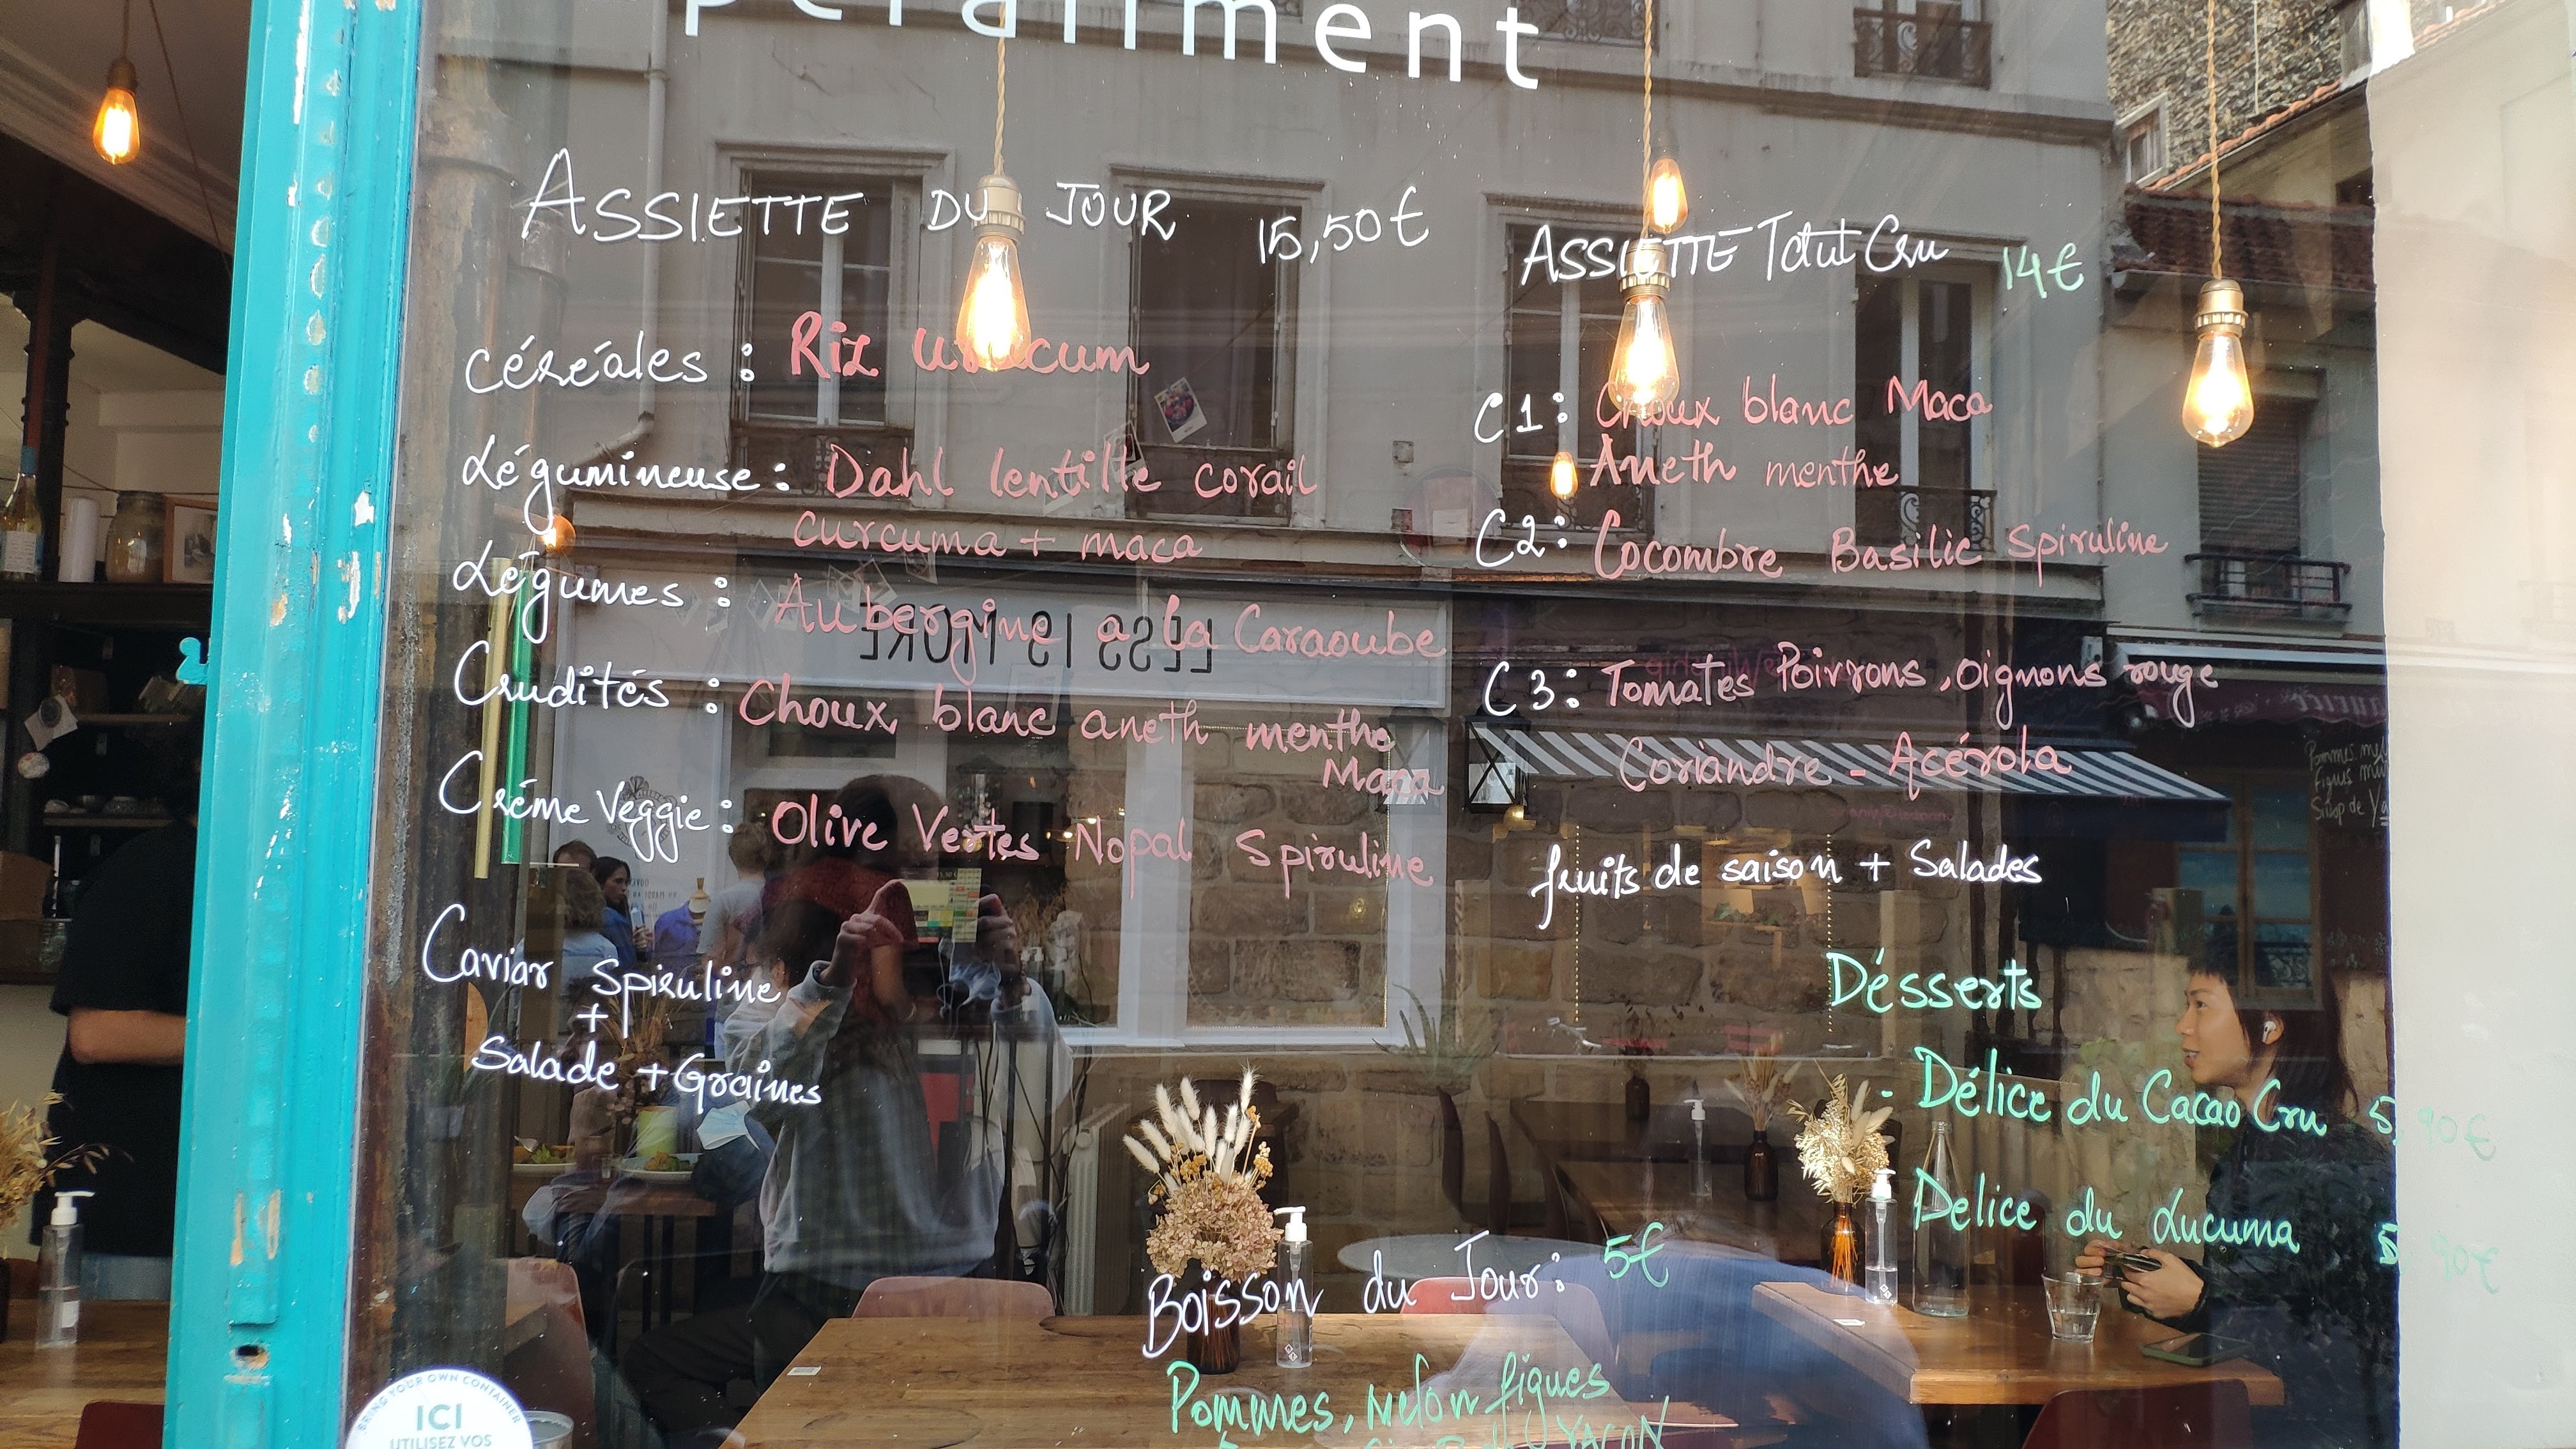 ASSIETTE DU JOUR 15,50€
céréales : Riz
Légumineuse : Dahl lentille corail
curcuma + maca
Légumes : Aubergine a la Caraoube
Crudités : Choux blanc aneth menthe
Maca
Créme Veggie : Olive Vertes Nopal Spiruline
Caviar Spiruline
+
Salade + Graines
ASSIETTE Tout Cru 14€
C1 : Choux blanc Maca
Aneth menthe
C2 : Cocombre Basilic Spiruline
C3 : Tomates Poivrons, oignons rouge
Coriandre - Acérola
fruits de saison + Salades
Désserts
- Délice du Cacao Cru 5,90€
Delice du Lucuma 5,90€
Boisson du Jour : 5€
Pommes, melon figues
YACON
LESS IS MORE
Pommes, me
Figues mu
Sirop de Ya
BRING YOUR OWN CONTAINER
ICI
UTILISEZ VOS